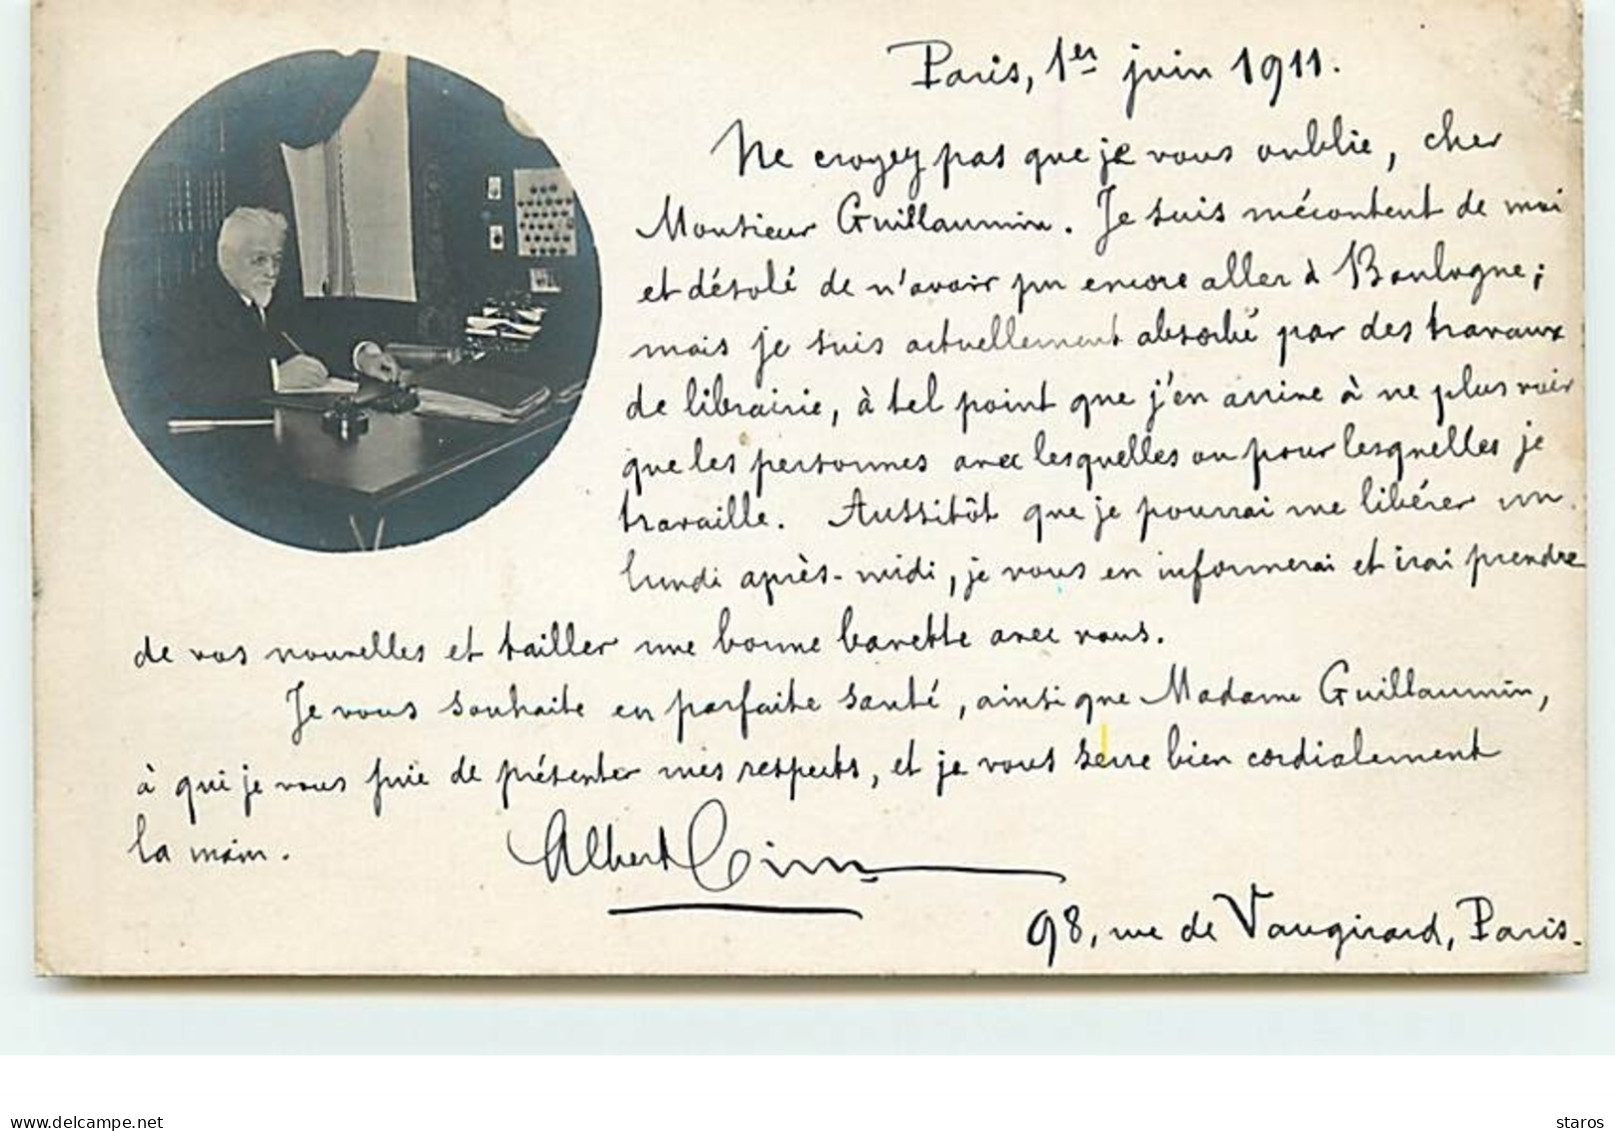 Paris, 1er juin 1911.
Ne croyez pas que je vous oublie, cher
Monsieur Guillaumin. Je suis mécontent de moi
et désolé de n'avoir pu encore aller à Boulogne;
mais je suis actuellement absorbé par des travaux
de librairie, à tel point que j'en arrive à ne plus voir
que les personnes avec lesquelles ou pour lesquelles je
travaille. Aussitôt que je pourrai me libérer un
lundi après-midi, je vous en informerai et irai prendre
de vos nouvelles et tailler une bonne bavette avec vous.
Je vous souhaite en parfaite santé, ainsi que Madame Guillaumin,
à qui je vous prie de présenter mes respects, et je vous serre bien cordialement
la main.
Albert Cim
98, rue de Vaugirard, Paris.
www.delcampe.net
staros